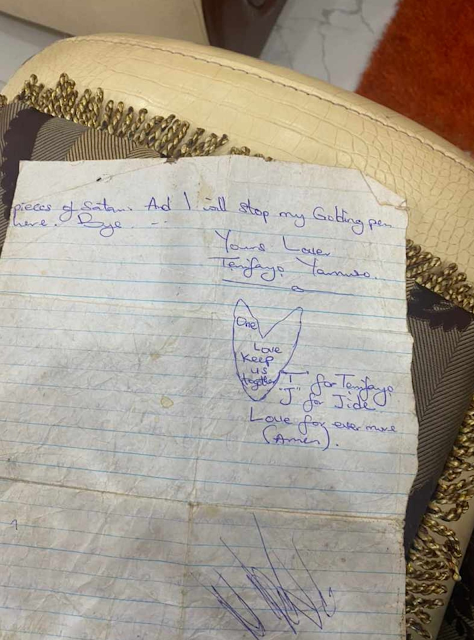 pieces of Satan. And I will stop my Golding pen
here. Bye. ---
Yours Lover
Temjayo Yamuso.
One
Love
Keep
us
together
"T" for Temjayo
"J" for Jide
Love for ever more
(Amen).